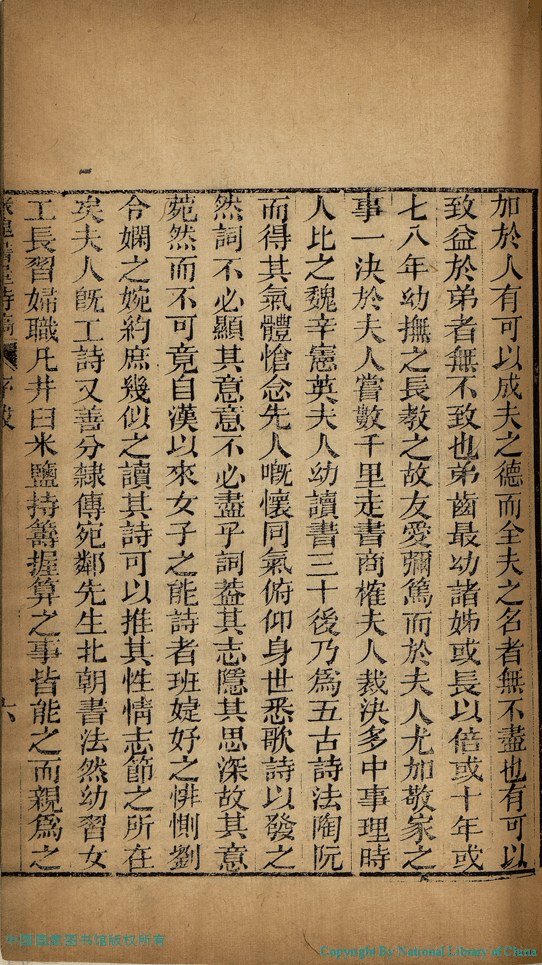 加於人有可以成夫之德而全夫之名者無不盡也有可以
致益於弟者無不致也弟齒最幼諸姊或長以倍或十年或
七八年幼撫之長教之故友愛彌篤而於夫人尤加敬家之
事一決於夫人嘗數千里走書商榷夫人裁決多中事理時
人比之魏辛憲英夫人幼讀書三十後乃爲五古詩法陶阮
而得其氣體愴念先人嘅懷同氣俯仰身世悉歌詩以發之
然詞不必顯其意意不必盡乎詞葢其志隱其思深故其意
菀然而不可竟自漢以來女子之能詩者班婕妤之悱惻劉
令嫻之婉約庶幾似之讀其詩可以推其性情志節之所在
矣夫人旣工詩又善分隸傳宛鄰先生北朝書法然幼習女
工長習婦職凡井臼米鹽持籌握算之事皆能之而親爲之
六
中国国家图书馆版权所有
Copyright By National Library of China